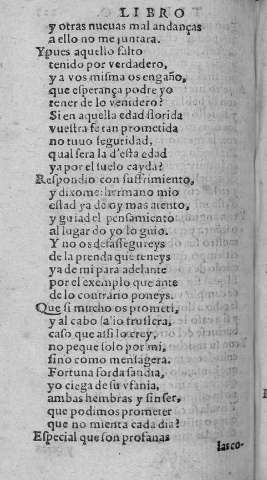 LIBRO
y otras nueuas mal andanças
a ello no me juntara.
Ypues aquello salto
tenido por verdadero,
y a vos misma os engaño,
que esperança podre yo
tener de lo venidero?
Si en aquella edad florida
vuestra fe tan prometida
no tuuo seguridad,
qual sera la d'esta edad
ya por el suelo cayda?
Respondio con sufrimiento,
y dixome: hermano mio
estad ya de oy mas atento,
y guiad el pensamiento
al lugar do yo lo guio.
Y no os desassegureys
de la prenda que teneys
ya de mi para adelante
por el exemplo que ante
de lo contrario poneys.
Que si mucho os prometi,
y al cabo salio fruslera,
caso que assi lo crey,
no peque solo por mi,
sino como mensagera.
Fortuna sorda sandia,
yo ciega de su vfania,
ambas hembras y sin ser,
que podimos prometer
que no mienta cada dia?
Especial que son profanas
las co-